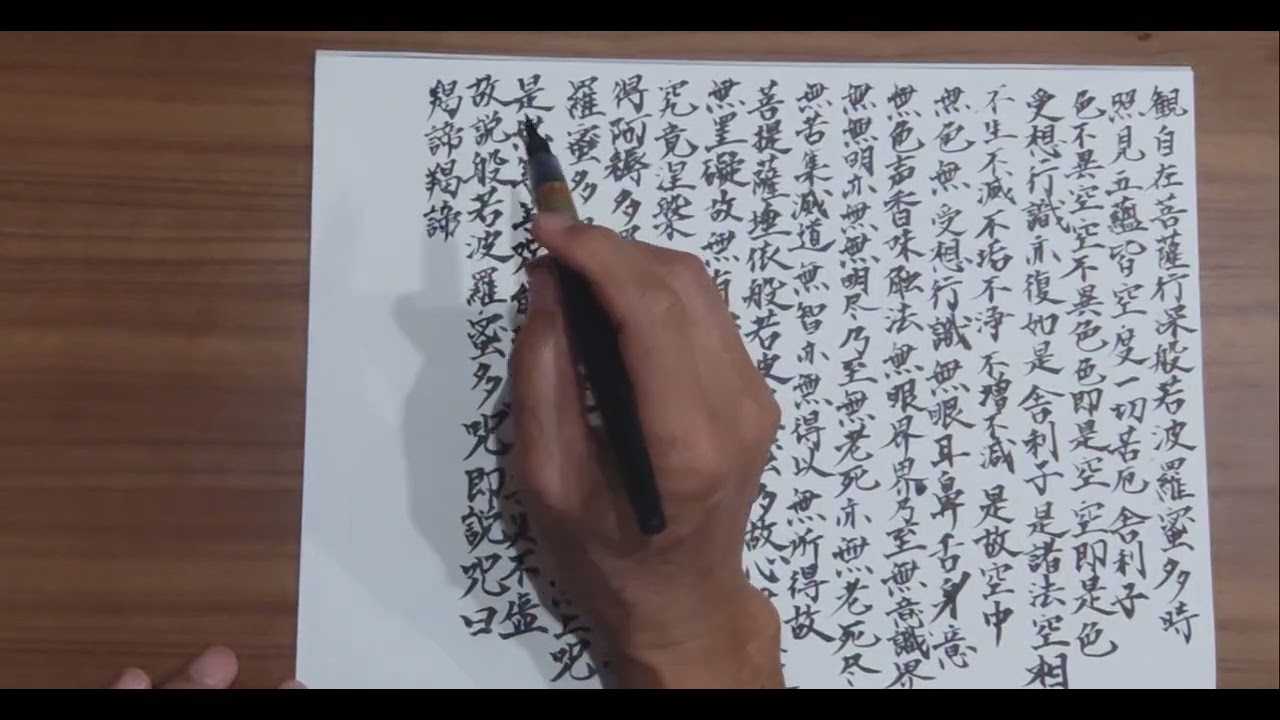 観自在菩薩行深般若波羅蜜多時
照見五蘊皆空度一切苦厄舎利子
色不異空空不異色色即是空空即是色
受想行識亦復如是舎利子是諸法空相
不生不滅不垢不浄不増不減是故空中
無色無受想行識無眼耳鼻舌身意
無色声香味触法無眼界界乃至無意識界
無無明亦無無明尽乃至無老死亦無老死尽
無苦集滅道無智亦無得以無所得故
菩提薩埵依般若波多故心
無罣礙故無有
究竟涅槃
得阿耨多
羅蜜多上呪
是上呪能不虚
故説般若波羅蜜多呪即説呪曰
羯諦羯諦